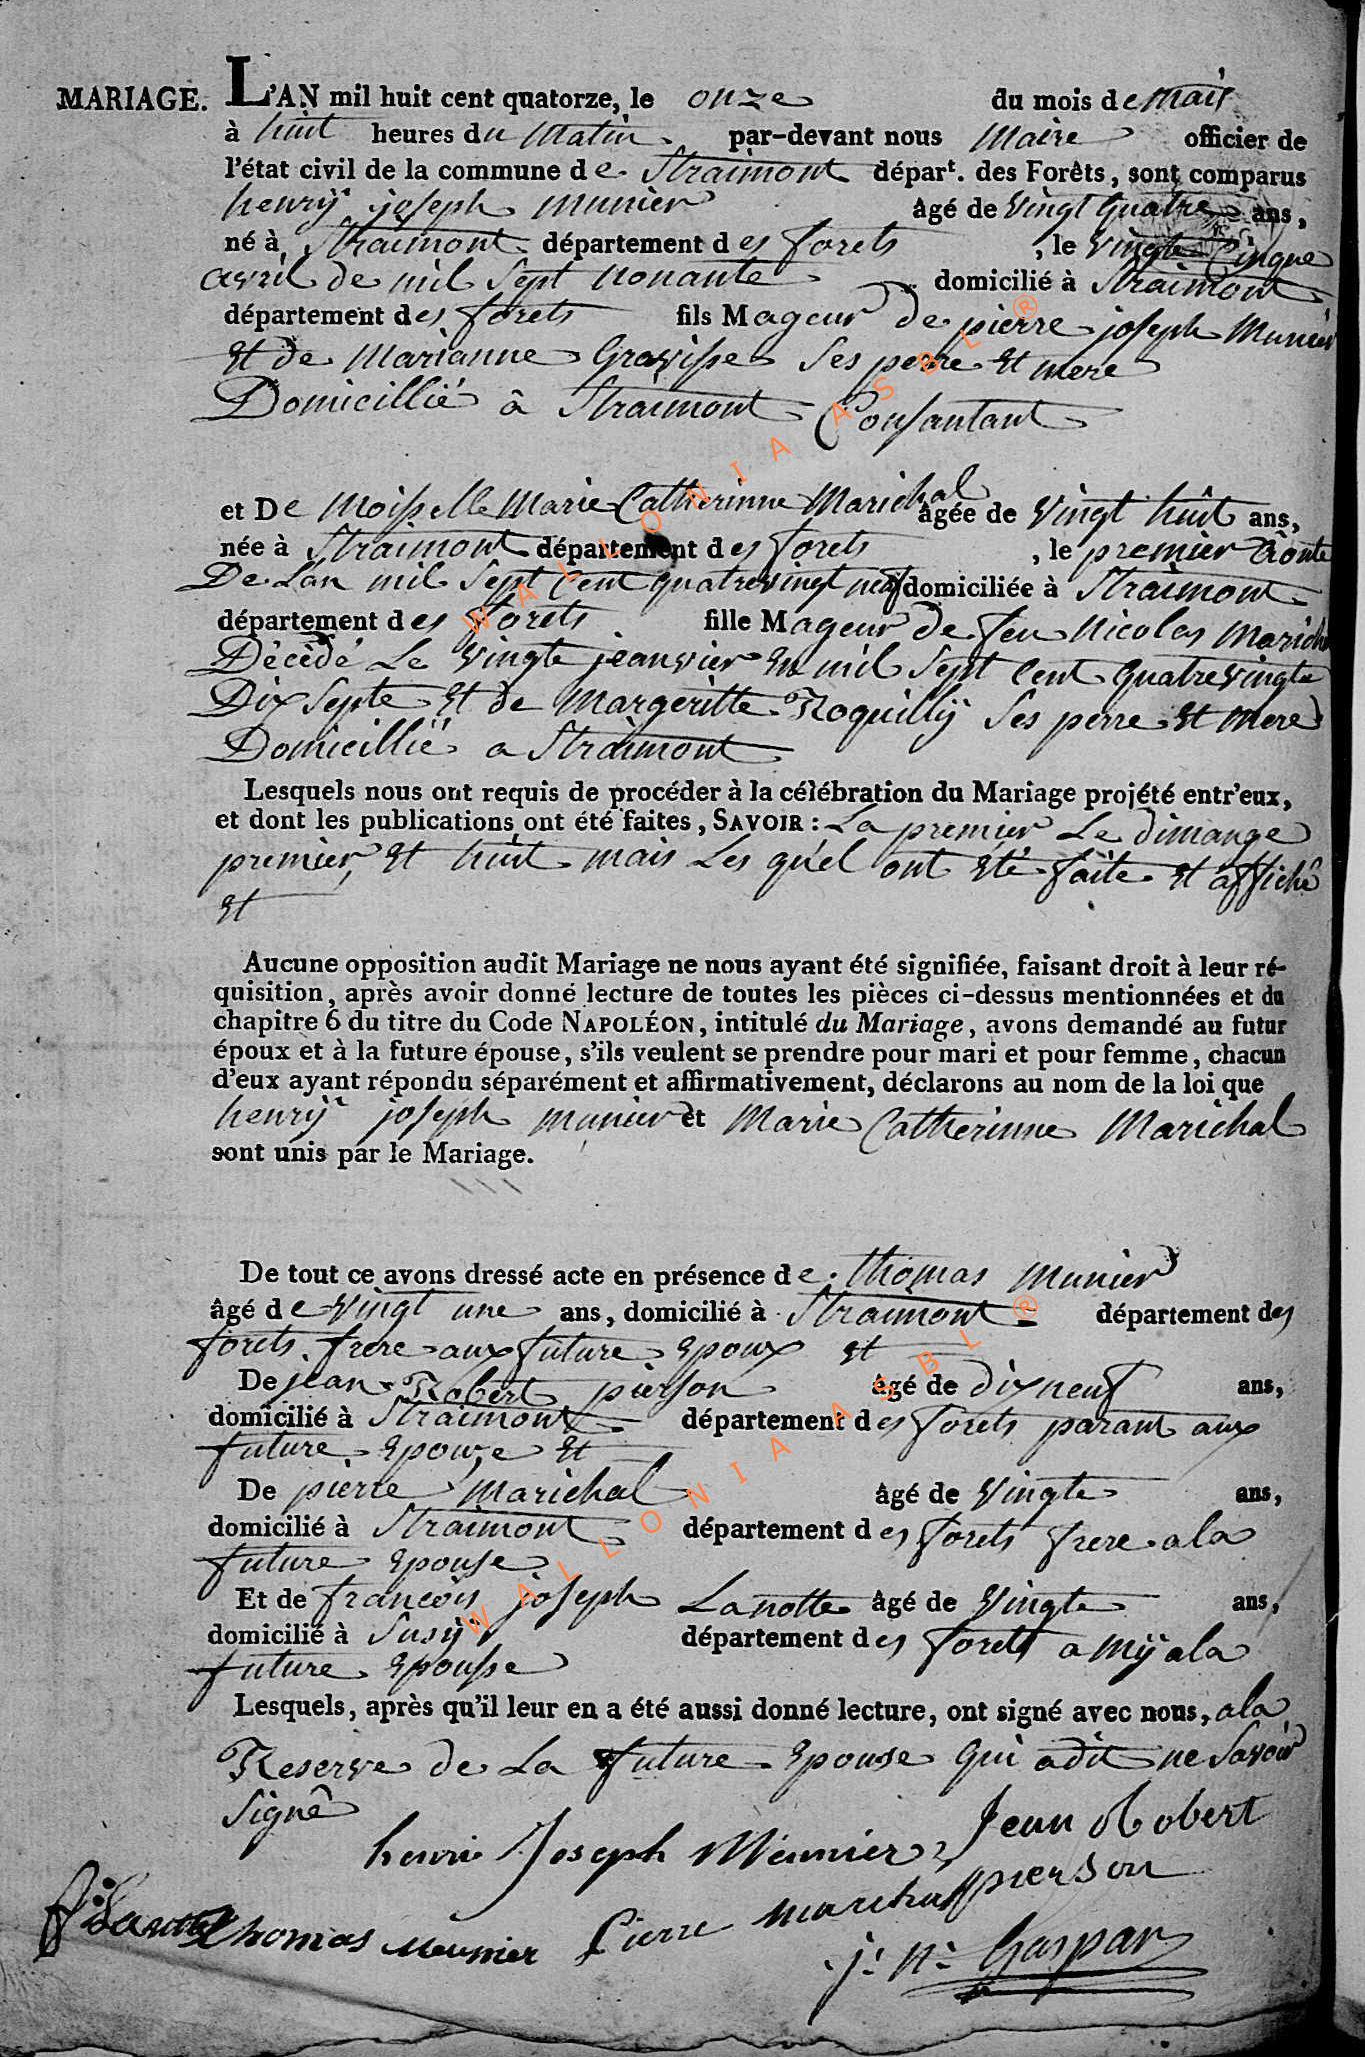 MARIAGE. L'AN mil huit cent quatorze, le onze du mois de mais
à huit heures du matin par-devant nous Maire officier de
l'état civil de la commune de Straimont départ. des Forêts, sont comparus
henrÿ joseph munier âgé de vingt quatre ans,
né à Straimont département des forets, le vingte cinque
avril de mil sept nonante domicilié à Straimont
département des forets fils Mageur de pierre joseph Munier
Et de Marianne Gravisse Ses perre Et mere
Domicillié â Straimont Consantant
et De Moisselle Marie Catherinne Marichal âgée de vingt huit ans,
née à Straimont département des forets, le premier
De L'an mil Sept Cent quatrevingt domiciliée à Straimont
département des forets fille Mageur de feu Nicolas
Décédé Le vingte jeanvier En mil Sept Cent quatrevingte
Dix Septe Et de Margeritte Roquillÿ Ses perre Et Mere
Domicillié a Straimont
Lesquels nous ont requis de procéder à la célébration du Mariage projété entr'eux,
et dont les publications ont été faites, SAVOIR: La premier Le dimange
premier Et huit mais Les qu'el ont Eté faite Et affiché
Et
Aucune opposition audit Mariage ne nous ayant été signifiée, faisant droit à leur ré-
quisition, après avoir donné lecture de toutes les pièces ci-dessus mentionnées et du
chapitre 6 du titre du Code NAPOLÉON, intitulé du Mariage, avons demandé au futur
époux et à la future épouse, s'ils veulent se prendre pour mari et pour femme, chacun
d'eux ayant répondu séparément et affirmativement, déclarons au nom de la loi que
henrÿ joseph munier et Marie Catherinne Marichal
sont unis par le Mariage.
De tout ce avons dressé acte en présence de thomas munier
âgé de vingt une ans, domicilié à Straimont département des
forets frere aux future Epoux Et
De jean Robert pierson âgé de dixneuf ans,
domicilié à Straimont département des forets parant aux
future Epouze Et
De pierre Marichal âgé de vingte ans,
domicilié à Straimont département des forets frere a la
future Epouse
Et de francois joseph Lanotte âgé de vingte ans,
domicilié à Susÿ département des forets a mÿ a la
future Epousse
Lesquels, après qu'il leur en a été aussi donné lecture, ont signé avec nous, a la
Reserve de La future Epouse Qui adit ne Savoir
Signê
henri Joseph Meunier Jean Robert
pierson
Thomas Meunier Pierre Marichal
j: n: Gaspar
WALLONIA ASBL ®
WALLONIA ASBL ®